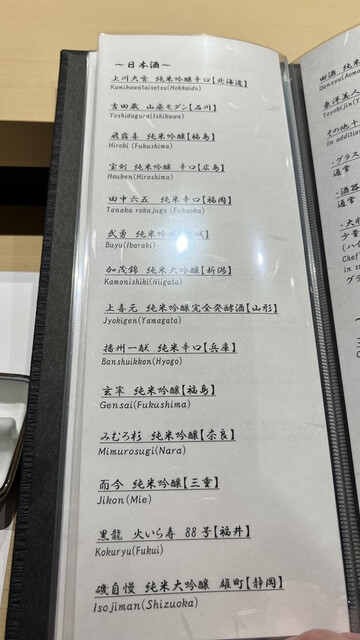 ～日本酒～
上川大雪 純米吟醸辛口【北海道】
Kamikawataisetsu(Hokkaido)
吉田蔵 山廃モダン【石川】
Yoshidagura(Ishikawa)
飛露喜 純米吟醸【福島】
Hiroki (Fukushima)
宝剣 純米吟醸 辛口【広島】
Houken(Hiroshima)
田中六五 純米辛口【福岡】
Tanaka rokujugo (Fukuoka)
武勇 純米吟醸
Buyu(Ibaraki)
加茂錦 純米大吟醸【新潟】
Kamonishiki(Niigata)
上喜元 純米吟醸完全発酵酒【山形】
Jyokigen(Yamagata)
播州一献 純米辛口【兵庫】
Banshuikkon(Hyogo)
玄宰 純米吟醸【福島】
Gensai(Fukushima)
みむろ杉 純米吟醸【奈良】
Mimurosugi(Nara)
而今 純米吟醸【三重】
Jikon(Mie)
黒龍 火いら寿 88号【福井】
Kokuryu(Fukui)
磯自慢 純米大吟醸 雄町【静岡】
Isojiman(Shizuoka)
田酒 純米
Densyu(Aom
東洋美人
Toyobijin(Y
その他十
In addition
・グラス
通常
・酒器
通常
・大
少量
Chef
in s